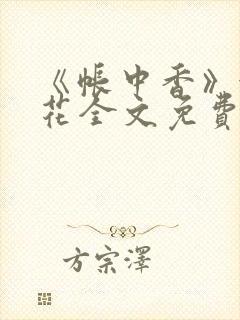 《帐中香》
花全文免費
方宗澤